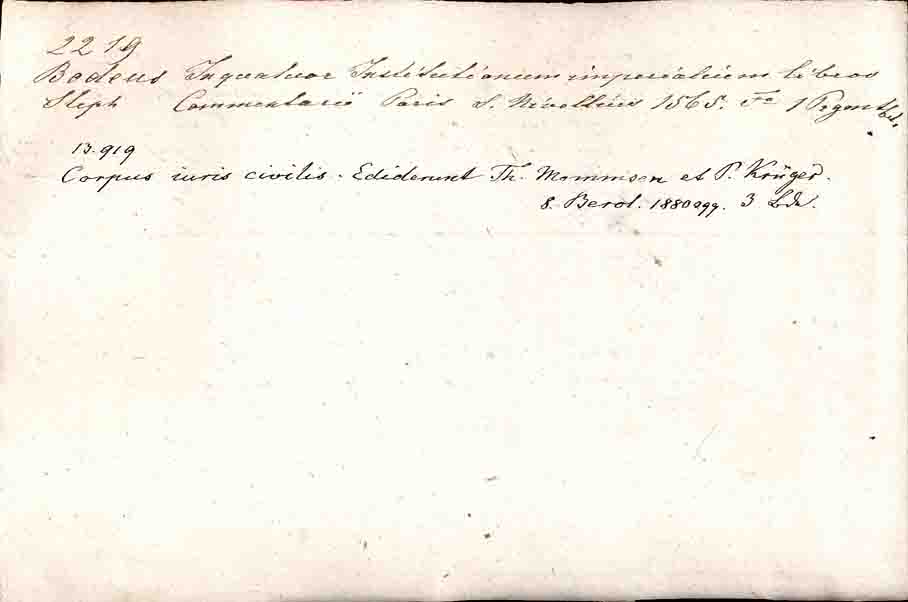 2219
Bodeus In quatuor Institutionum imperialium libros
Steph Commentarii Paris S. Nivellius 1565. Fo 1 Prgmtbd.
13.919
Corpus iuris civilis. Ediderunt Th. Mommsen et P. Krüger.
8. Berol. 1880sqq. 3 Bde.